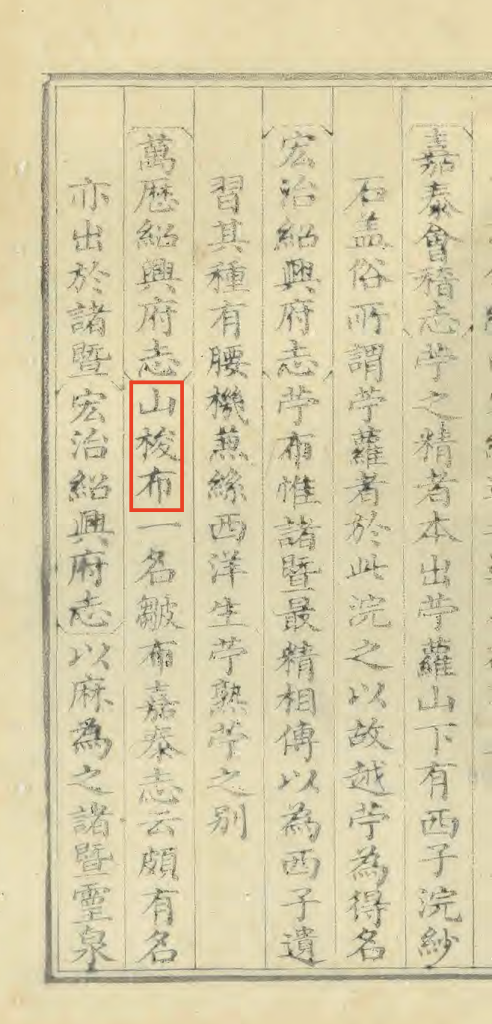 嘉泰會稽志苧之精者本出苧蘿山下有西子浣紗
石盖俗所謂苧蘿者於此浣之以故越苧為得名
宏治紹興府志苧布惟諸暨最精相傳以為西子遺
習其種有腰機蒸絲西洋生苧熟苧之别
萬歷紹興府志山梭布一名皺布嘉泰志云頗有名
亦出於諸暨宏治紹興府志以麻為之諸暨靈泉